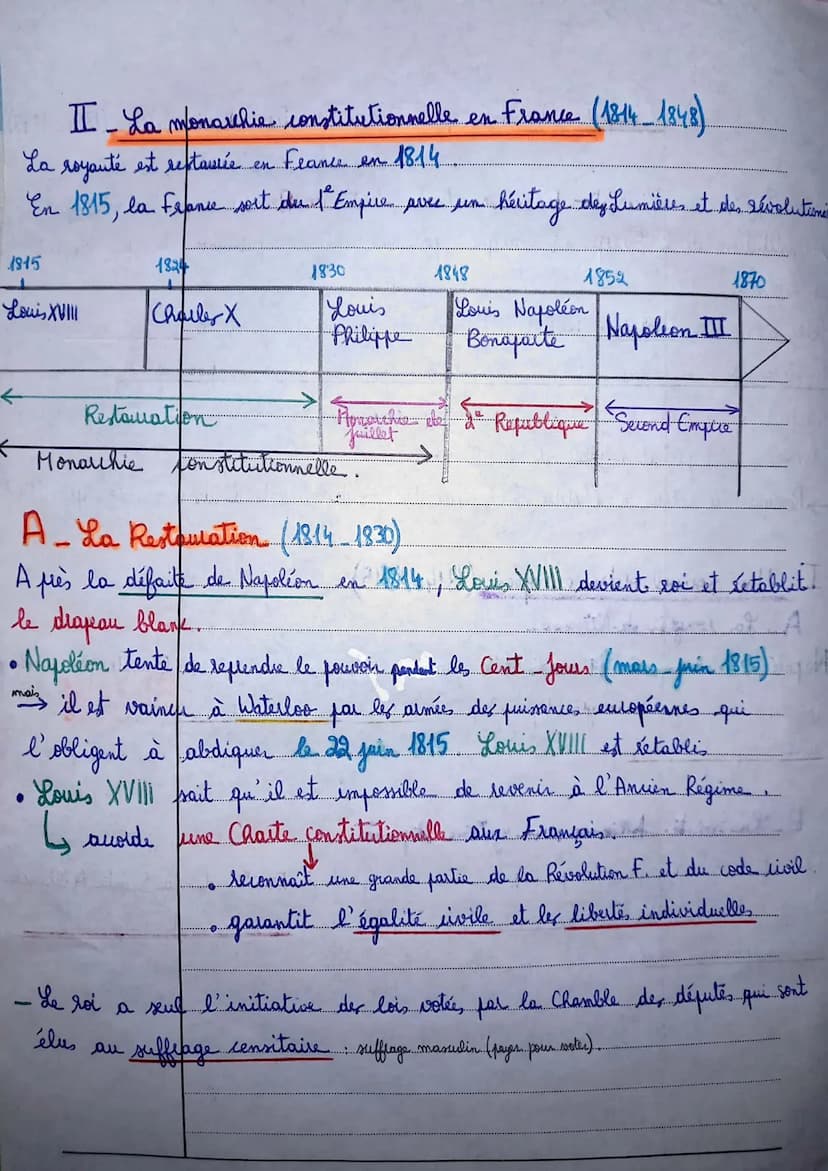 II - La monarchie constitutionnelle en France (1814-1848)
La royauté est restaurée en France en 1814.
En 1815, la France sort du 1e Empire avec un héritage des Lumières et des révolutions
1815 1824 1830 1848 1852 1870
Louis XVIII Charles X Louis Philippe Louis Napoléon Bonaparte Napoléon III
Restauration Monarchie de juillet 2e Republique Second Empire
Monarchie constitutionnelle.
A - La Restauration (1814-1830)
Après la défaite de Napoléon en 1814, Louis XVIII devient roi et rétablit
le drapeau blanc.
• Napoléon tente de reprendre le pouvoir pendant les Cent-Jours (mars-juin 1815)
mais → il est vaincu à Waterloo par les armées des puissances européennes qui
l'obligent à abdiquer le 22 juin 1815. Louis XVIII est rétablis
• Louis XVIII sait qu'il est impossible de revenir à l'Ancien Régime.
↳ accorde une Charte constitutionnelle aux Français.
• reconnaît une grande partie de la Révolution F. et du code civil.
• garantit l'égalité civile et les libertés individuelles
- Le roi a seul l'initiative des lois votées par la Chambre des députés qui sont
élus au suffrage censitaire : suffrage masculin (payer pour voter).